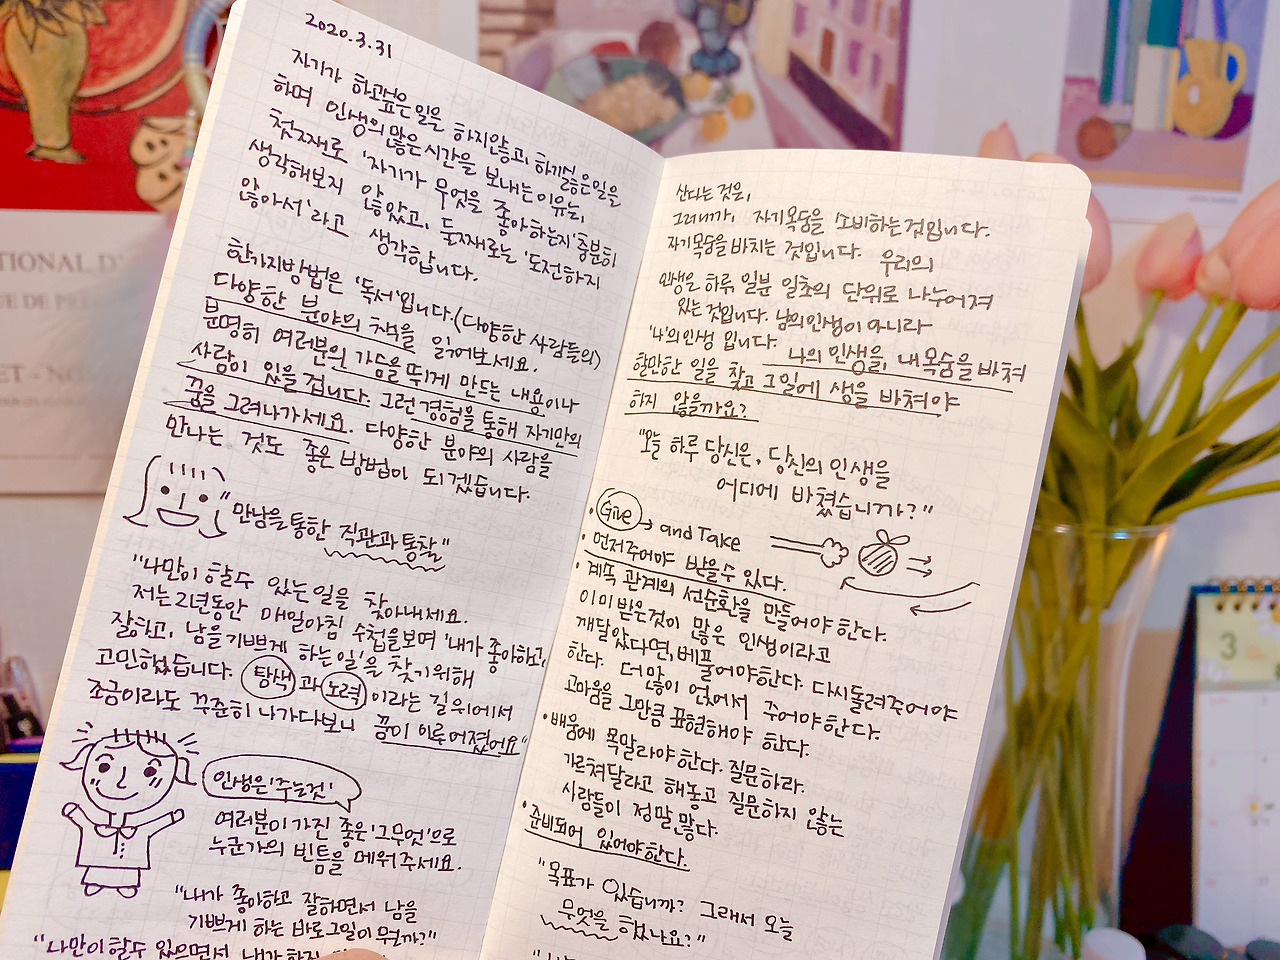 2020.3.31
자기가 하고싶은 일은 하지않고, 하기싫은일을
하며 인생의 많은 시간을 보내는 이유는,
첫째로 '자기가 무엇을 좋아하는지' 충분히
생각해보지 않았고, 둘째로는 '도전하지
않아서'라고 생각합니다.
한가지방법은 '독서'입니다.(다양한 사람들의)
다양한 분야의 책을 읽어보세요.
분명히 여러분의 가슴을 뛰게 만드는 내용이나
사람이 있을 겁니다. 그런 경험을 통해 자기만의
꿈을 그려나가세요. 다양한 분야의 사람을
만나는 것도 좋은 방법이 되겠습니다.
"만남을 통한 직관과 통찰"
"나만이 할수 있는 일을 찾아내세요.
저는 2년동안 매일아침 수첩을보며 '내가 좋아하고,
잘하고, 남을 기쁘게 하는 일'을 찾기위해
고민했습니다. 탐색 과 노력 이라는 길 위에서
조금이라도 꾸준히 나가다보니 꿈이 이루어졌어요"
인생은 '주는것'
여러분이 가진 좋은 '그 무엇'으로
누군가의 빈틈을 메워주세요.
"내가 좋아하고 잘하면서 남을
기쁘게 하는 바로 그일이 뭘까?"
"나만이 할수 있으면서 내가
산다는 것은,
그러니까, 자기목숨을 '소비하는 것'입니다.
자기목숨을 바치는 것입니다. 우리의
인생은 하루 일분 일초의 단위로 나누어져
있는 것입니다. 남의 인생이 아니라
'나'의 인생 입니다. 나의 인생을, 내 목숨을 바쳐
할만한 일을 찾고 그 일에 생을 바쳐야
하지 않을까요?
"오늘 하루 당신은, 당신의 인생을
어디에 바쳤습니까?"
• Give → and Take
• 먼저주어야 받을수 있다.
• 계속 관계의 선순환을 만들어야 한다.
이미 받은것이 많은 인생이라고
깨달았다면, 베풀어야한다. 다시돌려주어야
한다. 더 많이 얹어서 주어야 한다.
고마움을 그만큼 표현해야 한다.
• 배움에 목말라야 한다. 질문하라.
가르쳐달라고 해놓고 질문하지 않는
사람들이 정말 많다.
• 준비되어 있어야한다.
"목표가 있습니까? 그래서 오늘
무엇을 했나요?"
TIONAL D'
UE DE PR
ET - NO
3